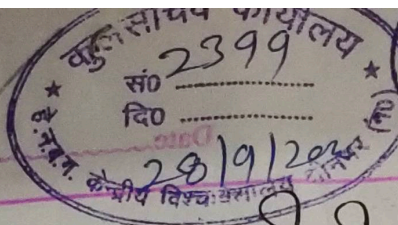 कुलसचिव कार्यालय
सं0 2399
दि0
28/9/20
हे.न.ब.ग. केन्द्रीय विश्वविद्यालय